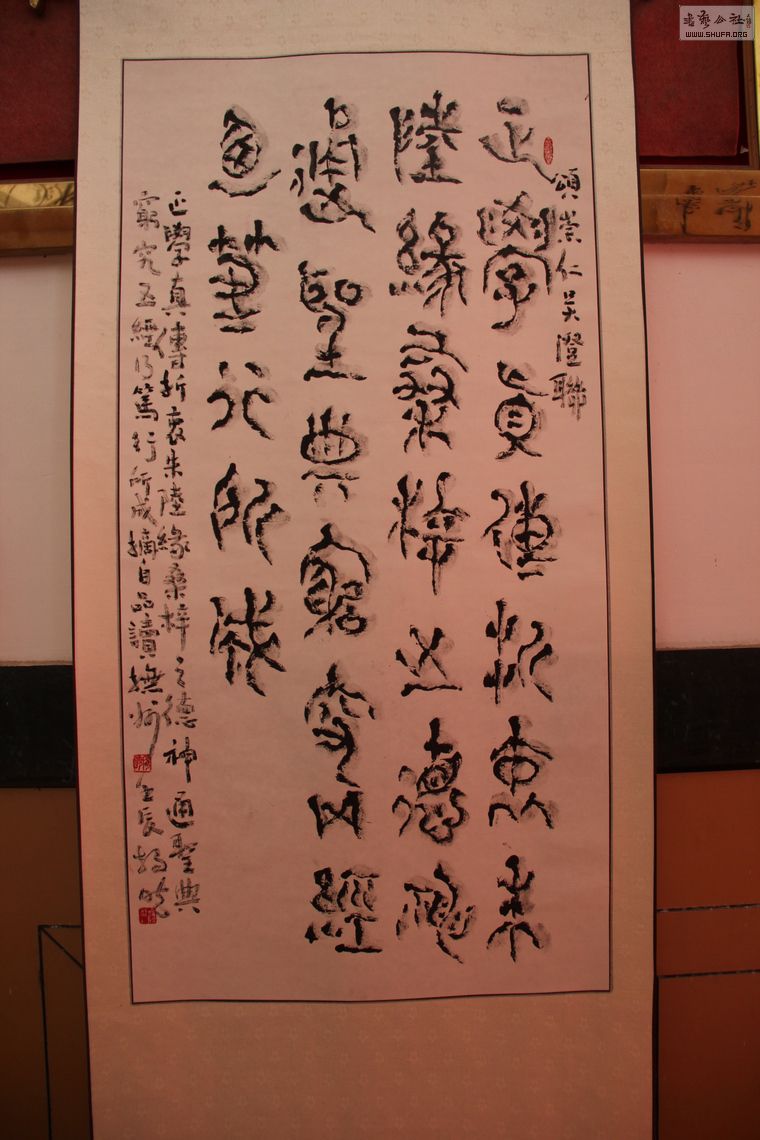 頌崇仁吴澄聯
正學真傳折衷朱
陸緣桑梓之德神
通聖典窮究五經
迺篤行所成
正學真傳折衷朱陸緣桑梓之德神通聖典
窮究五經乃篤行所成摘自品讀撫州 壬辰
書藝公社
WWW.SHUFA.ORG